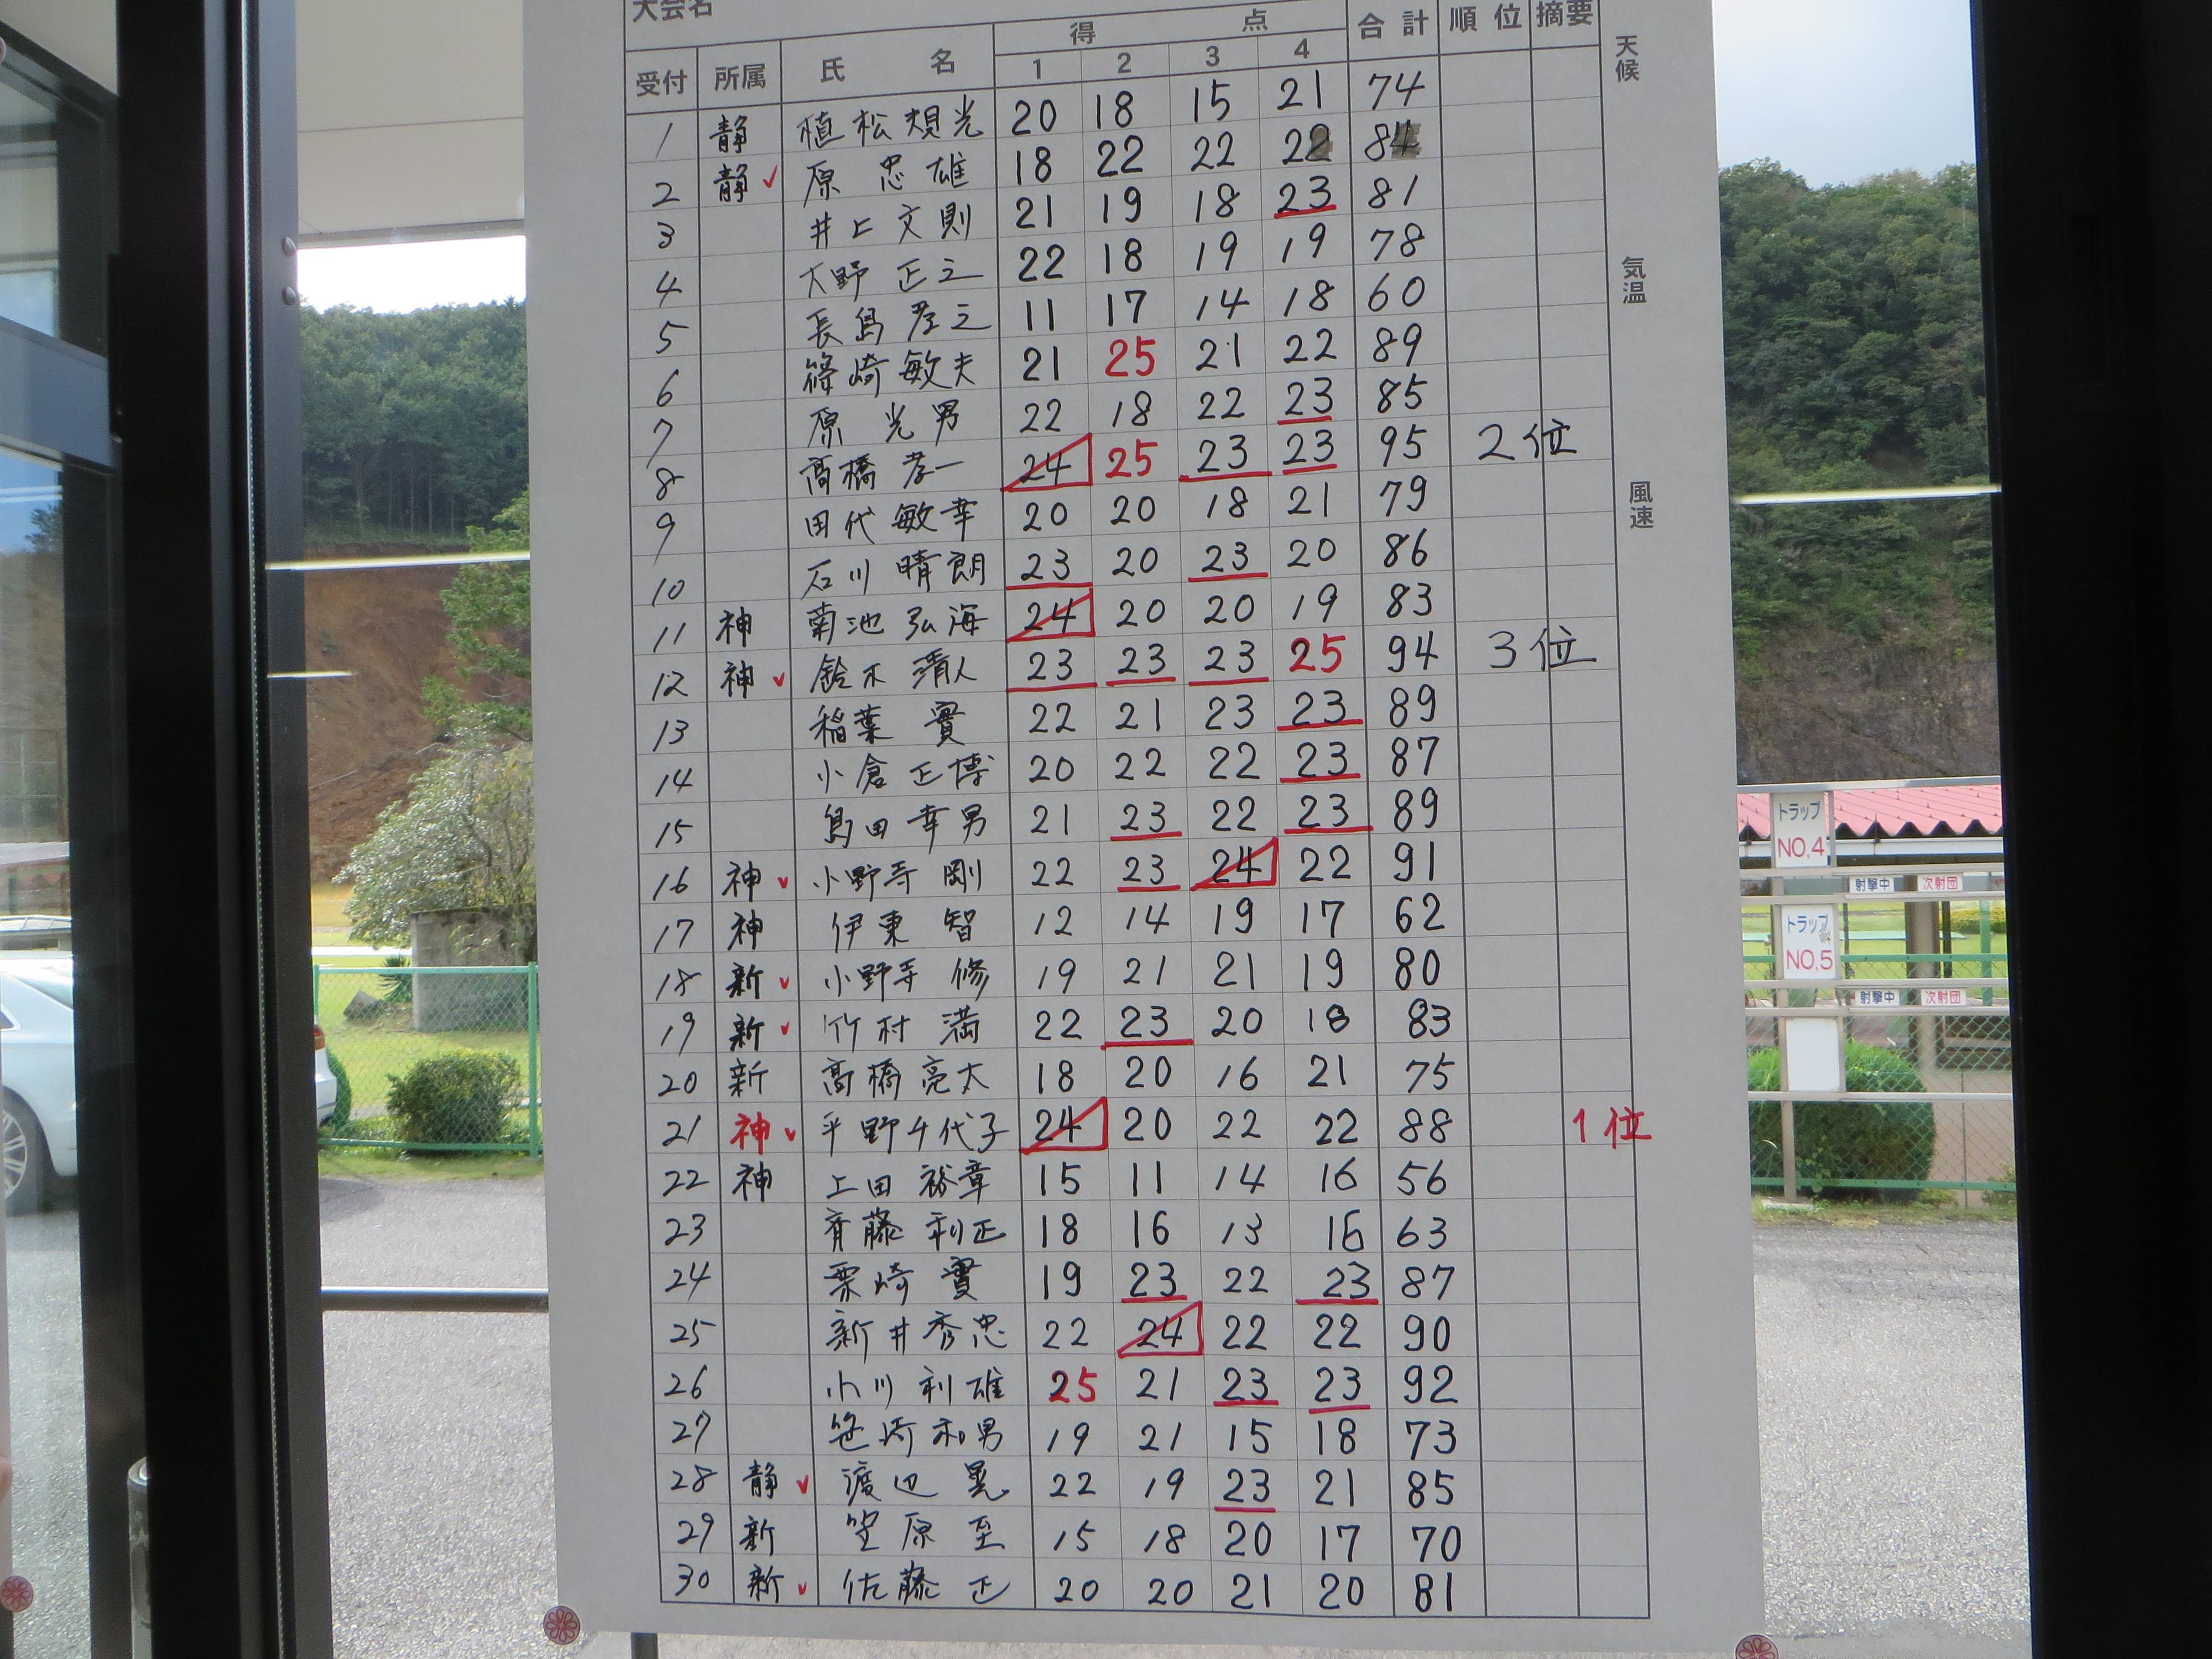 大会名
受付 所属 氏名 得点 1 2 3 4 合計 順位 摘要
1 静 植松 光 20 18 15 21 74
2 静 ✓ 原 忠雄 18 22 22 22 84
3 井上文則 21 19 18 23 81
4 大野正之 22 18 19 19 78
5 長島孝之 11 17 14 18 60
6 篠崎敏夫 21 25 21 22 89
7 原 光男 22 18 22 23 85
8 髙橋孝一 24 25 23 23 95 2位
9 田代敏幸 20 20 18 21 79
10 石川晴朗 23 20 23 20 86
11 神 菊池弘海 24 20 20 19 83
12 神 ✓ 鈴木清人 23 23 23 25 94 3位
13 稲葉 實 22 21 23 23 89
14 小倉正博 20 22 22 23 87
15 島田幸男 21 23 22 23 89
16 神 ✓ 小野寺 剛 22 23 24 22 91
17 神 伊東 智 12 14 19 17 62
18 新 ✓ 小野寺 修 19 21 21 19 80
19 新 ✓ 竹村 満 22 23 20 18 83
20 新 髙橋亮太 18 20 16 21 75
21 神 ✓ 平野千代子 24 20 22 22 88 1位
22 神 上田裕章 15 11 14 16 56
23 斉藤利正 18 16 13 16 63
24 栗崎 實 19 23 22 23 87
25 新井秀忠 22 24 22 22 90
26 小川利雄 25 21 23 23 92
27 笹崎和男 19 21 15 18 73
28 静 ✓ 渡辺 晃 22 19 23 21 85
29 新 笠原 至 15 18 20 17 70
30 新 ✓ 佐藤 正 20 20 21 20 81
天候
気温
風速
トラップ
NO,4
射撃中 次射団
トラップ
NO,5
射撃中 次射団